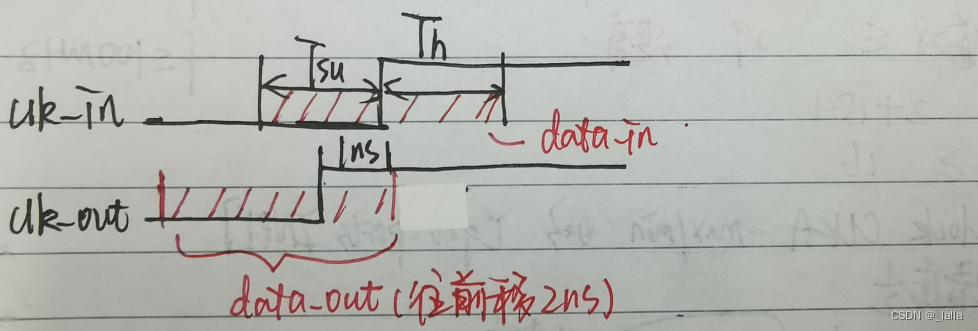 Tsu
Th
clk-in
data-in
1ns
clk-out
data-out (往前移2ns)
CSDN @_lalla